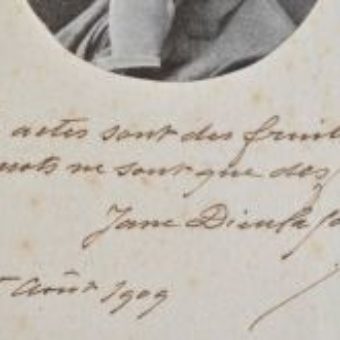 actes sont des fruit
mots ne sont que des
Jane Dieulafo
Août 1909